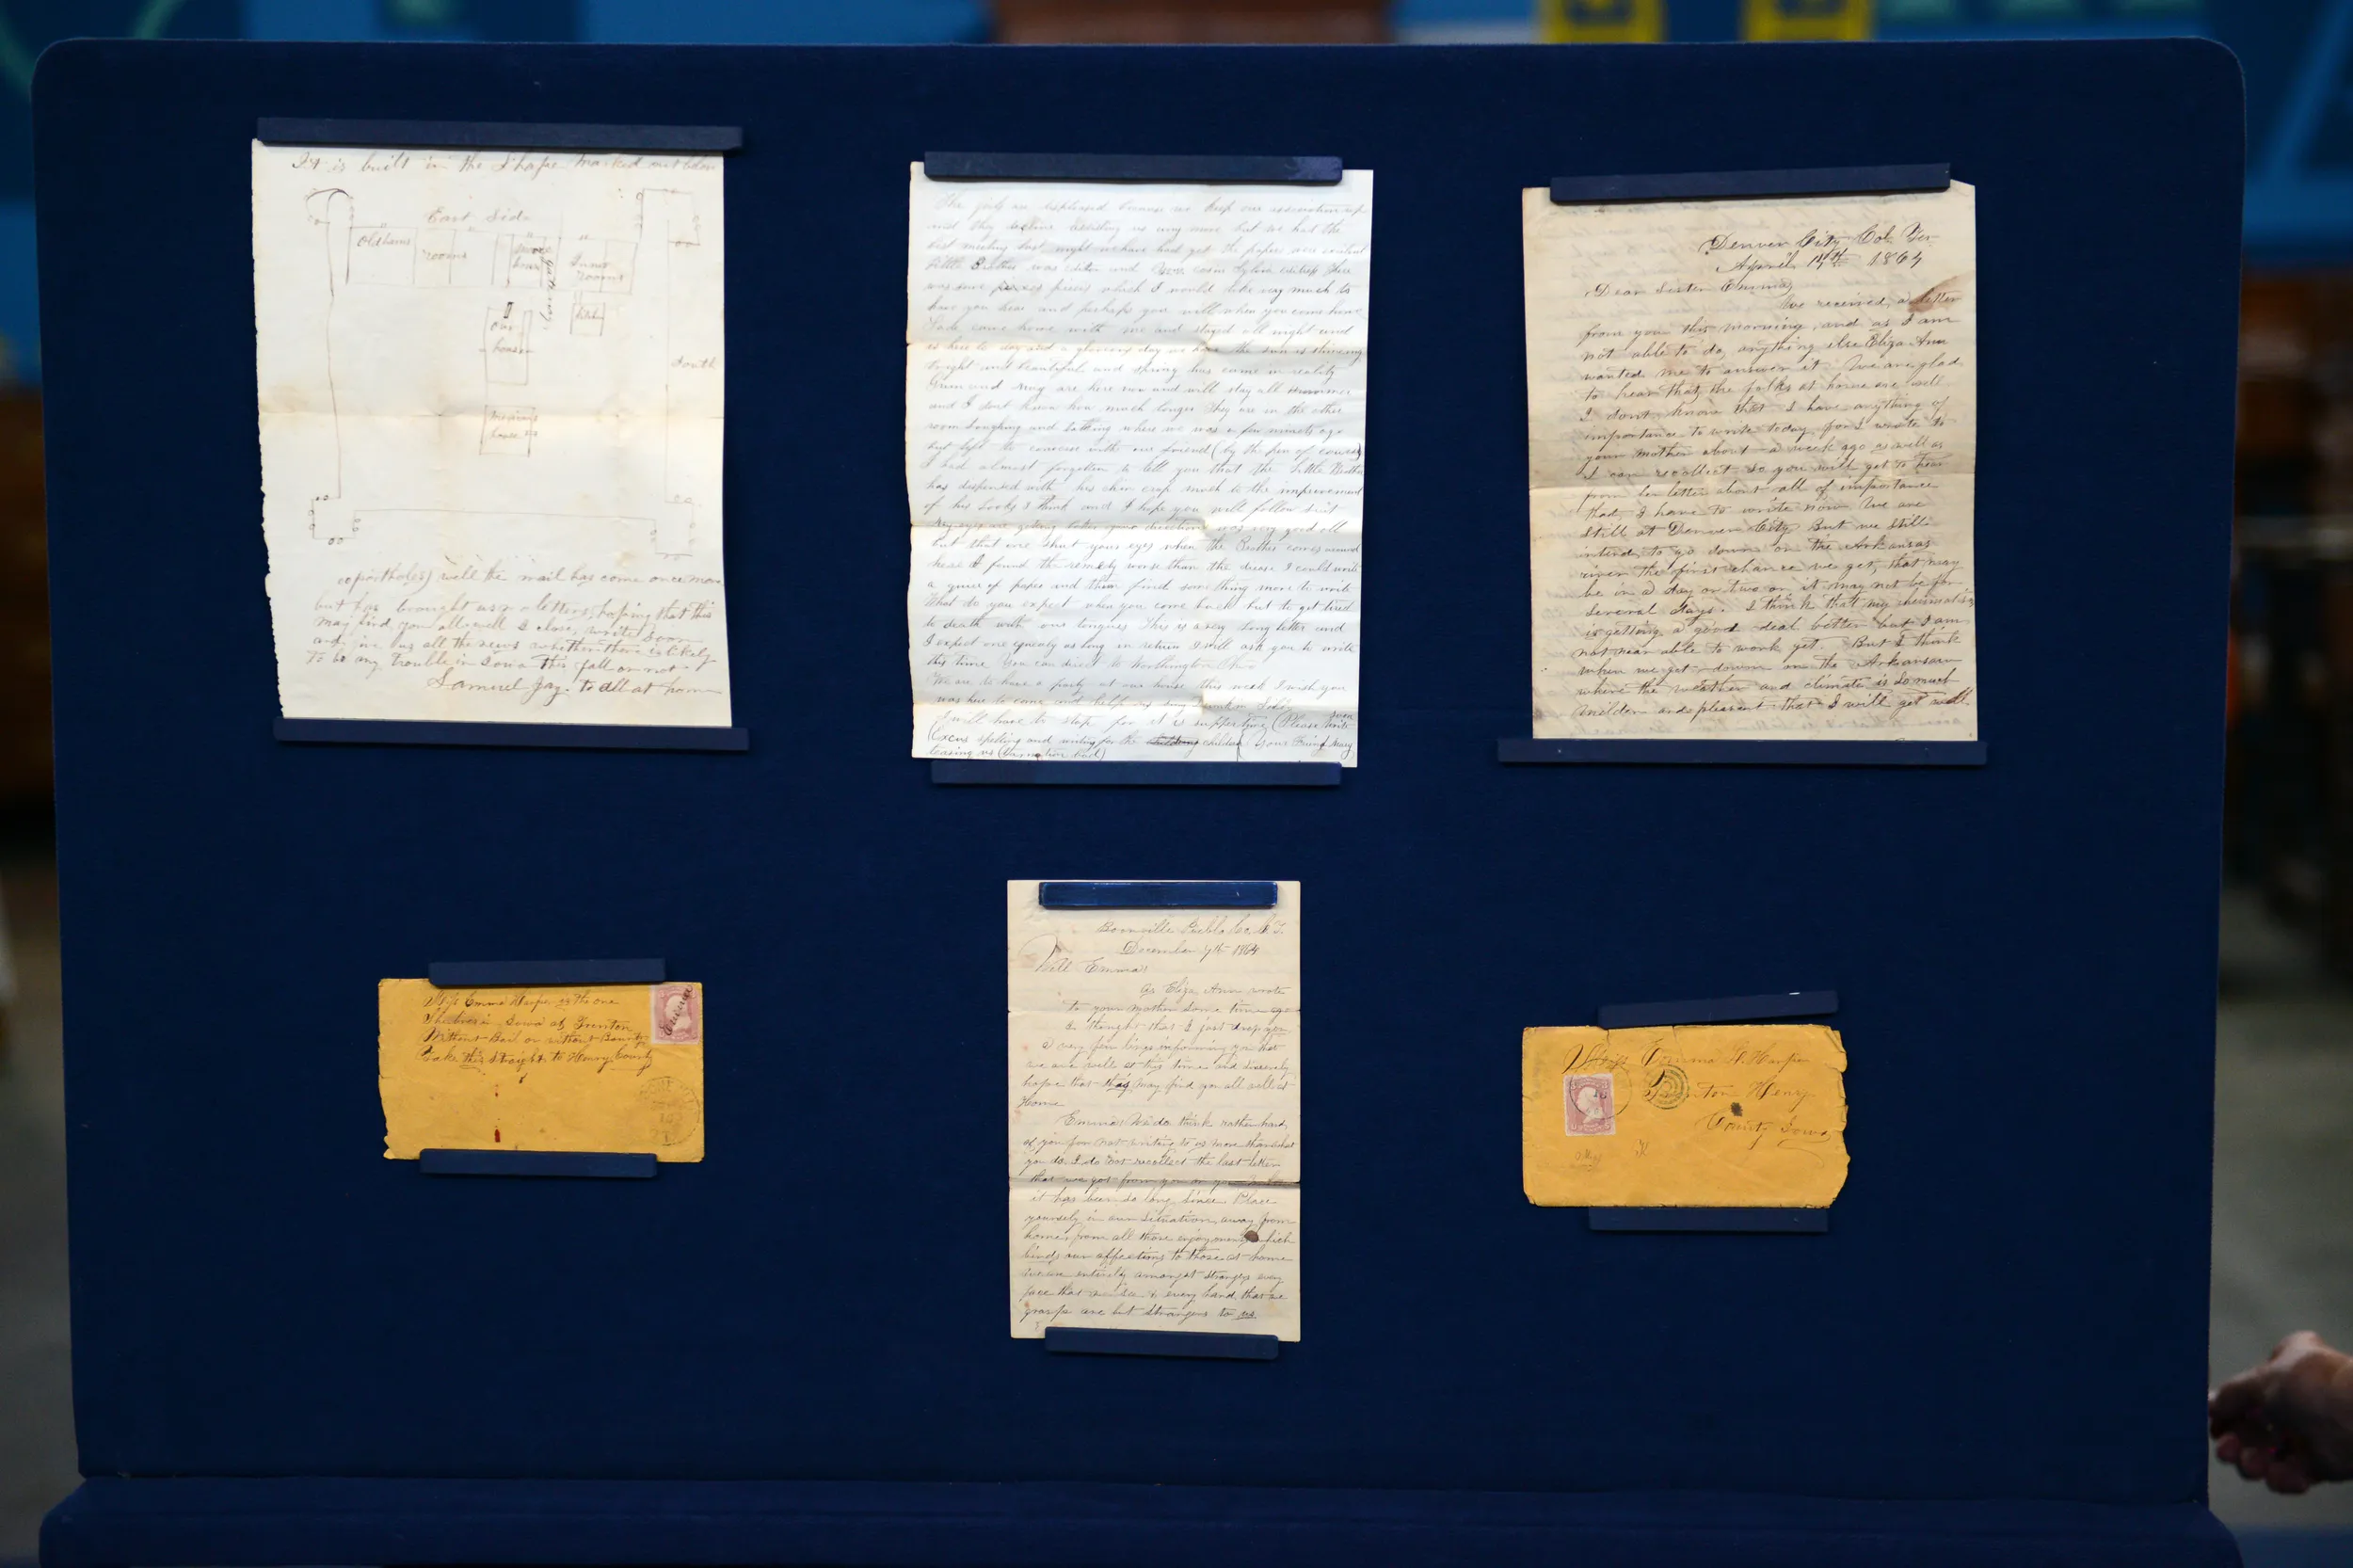 It is built in the Shape marked out below
East Side
Oldhams
rooms
rooms
Our
house
Mexicans
house
South
o(portholes) well the mail has come once more
but has brought us no letters, hoping that this
may find you all well I close, write Soon
and give us all the news whether there is likely
to be any trouble in Iowa this fall or not.
Samuel Jay. to all at home
The girls are displeased because we keep our association up
and they decline assisting us any more but we had the
best meeting last night we have had yet the papers are excellent
little Brother was editor and
was some pieces which I would like very much to
have you hear and perhaps you will when you come home
came home with me and stayed all night and
is here to day and a glorious day we have the sun is shining
bright and beautiful and spring has come in reality
and Mag are here now and will stay all summer
and I dont know how much longer They are in the other
room laughing and talking where we was a few minutes ago
but left to converse with our friend (by the pen of course)
I had almost forgotten to tell you that the little Brother
has dispensed with his chin crop much to the improvement
of his looks I think and I hope you will follow suit
My eyes are getting better your directions was very good all
but that one shut your eyes when the Brother comes around
here I found the remedy worse than the disease I could write
a quire of paper and then find something more to write
What do you expect when you come back but to get tired
to death with our tongues This is a very long letter and
I expect one equaly as long in return I will ask you to write
this time You can direct to Worthington Ohio
We are to have a party at our house this week I wish you
was here to come and help us
I will have to stop for it is supper time (Please write soon
(Excus spelling and writing for the children Your Friend Mary
teasing us
Denver City Col. Ter.
April 14th 1864
Dear Sister Emma,
We received a letter
from you this morning, and as I am
not able to do, anything else Eliza Ann
wanted me to answer it. We are glad
to hear that the folks at home are well
I dont know that I have anything of
importance to write today, for I wrote to
your mother about a week ago as well as
I can recollect. So you will get to hear
from her letter about all of importance
that I have to write now We are
still at Denver City. But we still
intend to go down on the Arkansas
river the first chance we get, that may
be in a day or two or it may not be for
several days. I think that my rheumatism
is getting a good deal better but I am
not near able to work yet. But I think
when we get down on the Arkansas
where the weather and climate is so much
milder and pleasant that I will get well
Miss Emma Harper is the one
She lives in Iowa at Trenton
Without Bail or without Bounty
Take this straight to Henry County
Boonville Pueblo Co.
December 7th 1864
Well Emma
As Eliza Ann wrote
to your mother some time ago
I thought that I just drop you
a very few lines informing you that
we are well at this time and sincerely
hope that this may find you all well at
Home
Emma We do think rather hard
of you for not writing to us more than what
you do. I do not recollect the last letter
that we got from you
it has been so long since. Place
yourself in our situation, away from
home, from all those enjoyments which
binds our affections to those at home
we are entirely amongst strangers every
face that we see & every hand that we
grasp are but strangers to us.
Miss Emma H. Harper
Trenton Henry
County Iowa